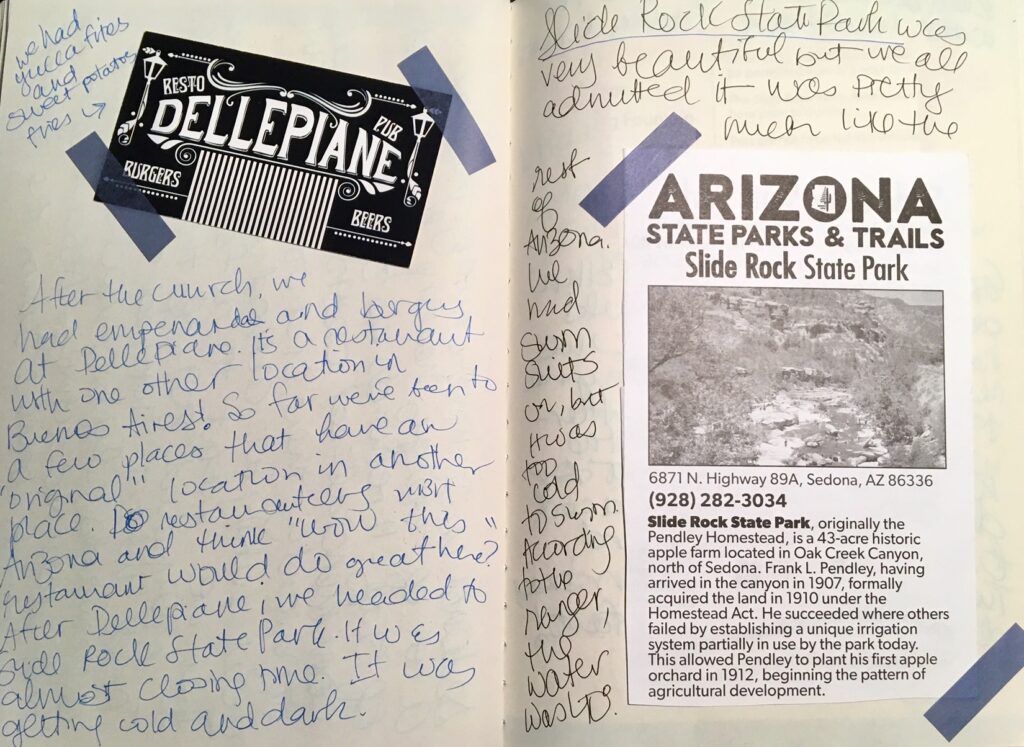 we had
yucca fries
and
sweet potatoe
fries →
RESTO
DELLEPIANE
PUB
BURGERS
BEERS
After the church, we
had empenandas and burgers
at Dellepiane. It's a restaurant
with one other location in
Buenos Aires! So far we've been to
a few places that have an
"original" location in another
place. Do restauranteers visit
Arizona and think "wow this
restaurant would do great here?"
After Dellepiane, we headed to
Slide Rock State Park. It was
almost closing time. It was
getting cold and dark.
Slide Rock State Park was
very beautiful but we all
admitted it was pretty
much like the
rest
of
Arizona.
We
had
swim
suits
on, but
it was
too
cold
to swim.
According
to the
ranger,
the
water
was
ARIZONA
STATE PARKS & TRAILS
Slide Rock State Park
6871 N. Highway 89A, Sedona, AZ 86336
(928) 282-3034
Slide Rock State Park, originally the
Pendley Homestead, is a 43-acre historic
apple farm located in Oak Creek Canyon,
north of Sedona. Frank L. Pendley, having
arrived in the canyon in 1907, formally
acquired the land in 1910 under the
Homestead Act. He succeeded where others
failed by establishing a unique irrigation
system partially in use by the park today.
This allowed Pendley to plant his first apple
orchard in 1912, beginning the pattern of
agricultural development.